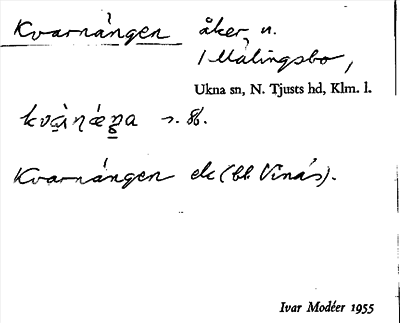 Kvarnången åker, n.
1 Målingsbo,
Ukna sn, N. Tjusts hd, Klm. l.
s. 86.
Kvarnången ek (bl. Vinås).
Ivar Modéer 1955